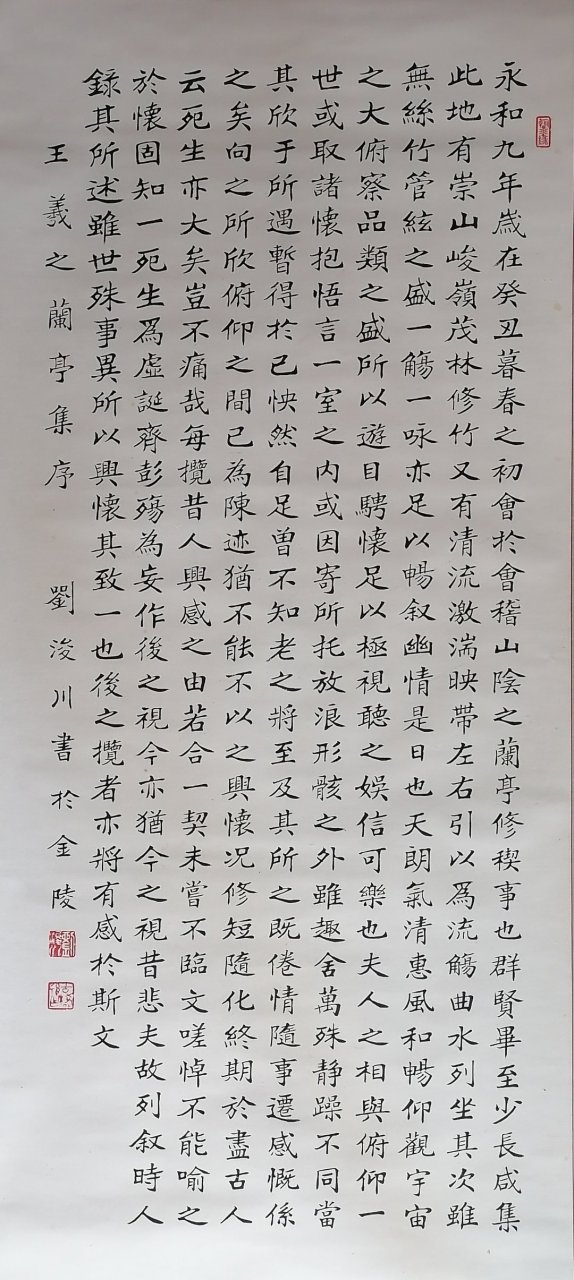 永和九年歲在癸丑暮春之初會於會稽山陰之蘭亭修稧事也群賢畢至少長咸集
此地有崇山峻嶺茂林修竹又有清流激湍映帶左右引以爲流觴曲水列坐其次雖
無絲竹管絃之盛一觴一咏亦足以暢叙幽情是日也天朗氣清惠風和暢仰觀宇宙
之大俯察品類之盛所以遊目騁懷足以極視聽之娛信可樂也夫人之相與俯仰一
世或取諸懷抱悟言一室之内或因寄所托放浪形骸之外雖趣舍萬殊静躁不同當
其欣于所遇暫得於己怏然自足曾不知老之將至及其所之既倦情隨事遷感慨係
之矣向之所欣俯仰之間已為陳迹猶不能不以之興懷况修短隨化終期於盡古人
云死生亦大矣豈不痛哉每攬昔人興感之由若合一契未嘗不臨文嗟悼不能喻之
於懷固知一死生爲虛誕齊彭殤為妄作後之視今亦猶今之視昔悲夫故列叙時人
錄其所述雖世殊事異所以興懷其致一也後之攬者亦將有感於斯文
王羲之蘭亭集序 劉浚川書於金陵